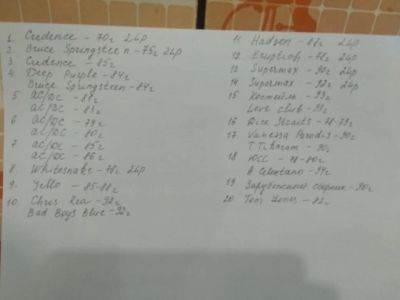 1. Credence - 70г 2др
2 Bruce Springsteen - 75г 2др
3. Credence - 85г
4. Deep Purple - 84г
Bruce Springsteen - 84г
5 AC/DC -
AC/DC - 83г
6 AC/DC - 79г
AC/DC - 80г
7 AC/DC - 85г
AC/DC - 86г
8. Whitesnake - 78г 2др
9. Yello - 85-88г
10. Chris Rea - 92г
Bad Boys Blue - 92г
11. Hadson - 88г 2др
12 - 78г 2др
13 Supermax - 90г 2др
14 Supermax - 92г 2др
15 - 93г
Love club - 93г
16 Dire Straits - 78-79г
17 Vanessa Paradis - 90г
T. Tikaram - 90г
18 - 78-80г
A Celentano - 94г
19 Зарубежный сборник - 90г
20. Tom Jones - 82г